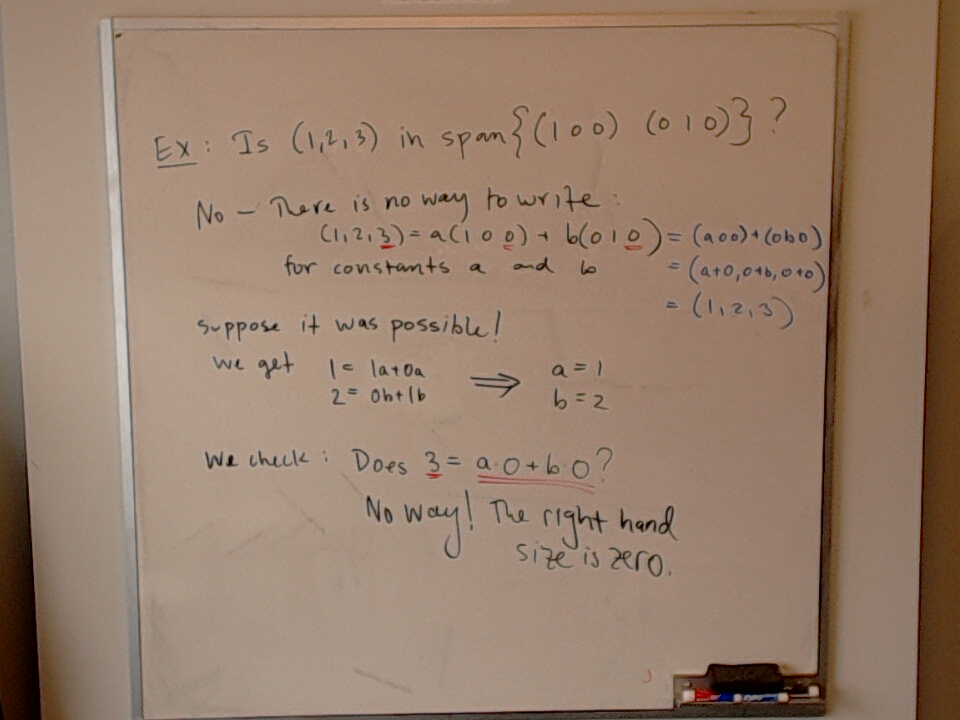 Ex: Is (1,2,3) in span{(1 0 0) (0 1 0)}?
No – There is no way to write:
(1,2,3) = a(1 0 0) + b(0 1 0) = (a 0 0) + (0 b 0)
for constants a and b = (a+0, 0+b, 0+0)
= (1, 2, 3)
suppose it was possible!
we get 1 = 1a+0a ⟹ a = 1
2 = 0b+1b b = 2
We check: Does 3 = a·0 + b·0?
No way! The right hand
size is zero.